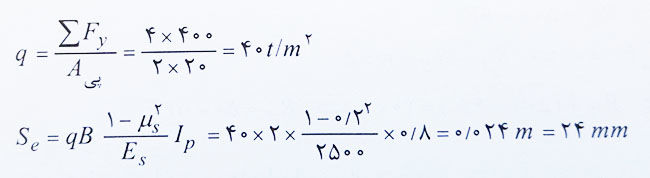 q = ∑F_y / A_پی = ۴ × ۴۰۰ / ۲ × ۲۰ = ۴۰ t/m^۲
S_e = qB (۱ − μ_s^۲) / E_s I_p = ۴۰ × ۲ × (۱ − ۰/۲^۲) / ۲۵۰۰ × ۰/۸ = ۰/۰۲۴ m = ۲۴ mm